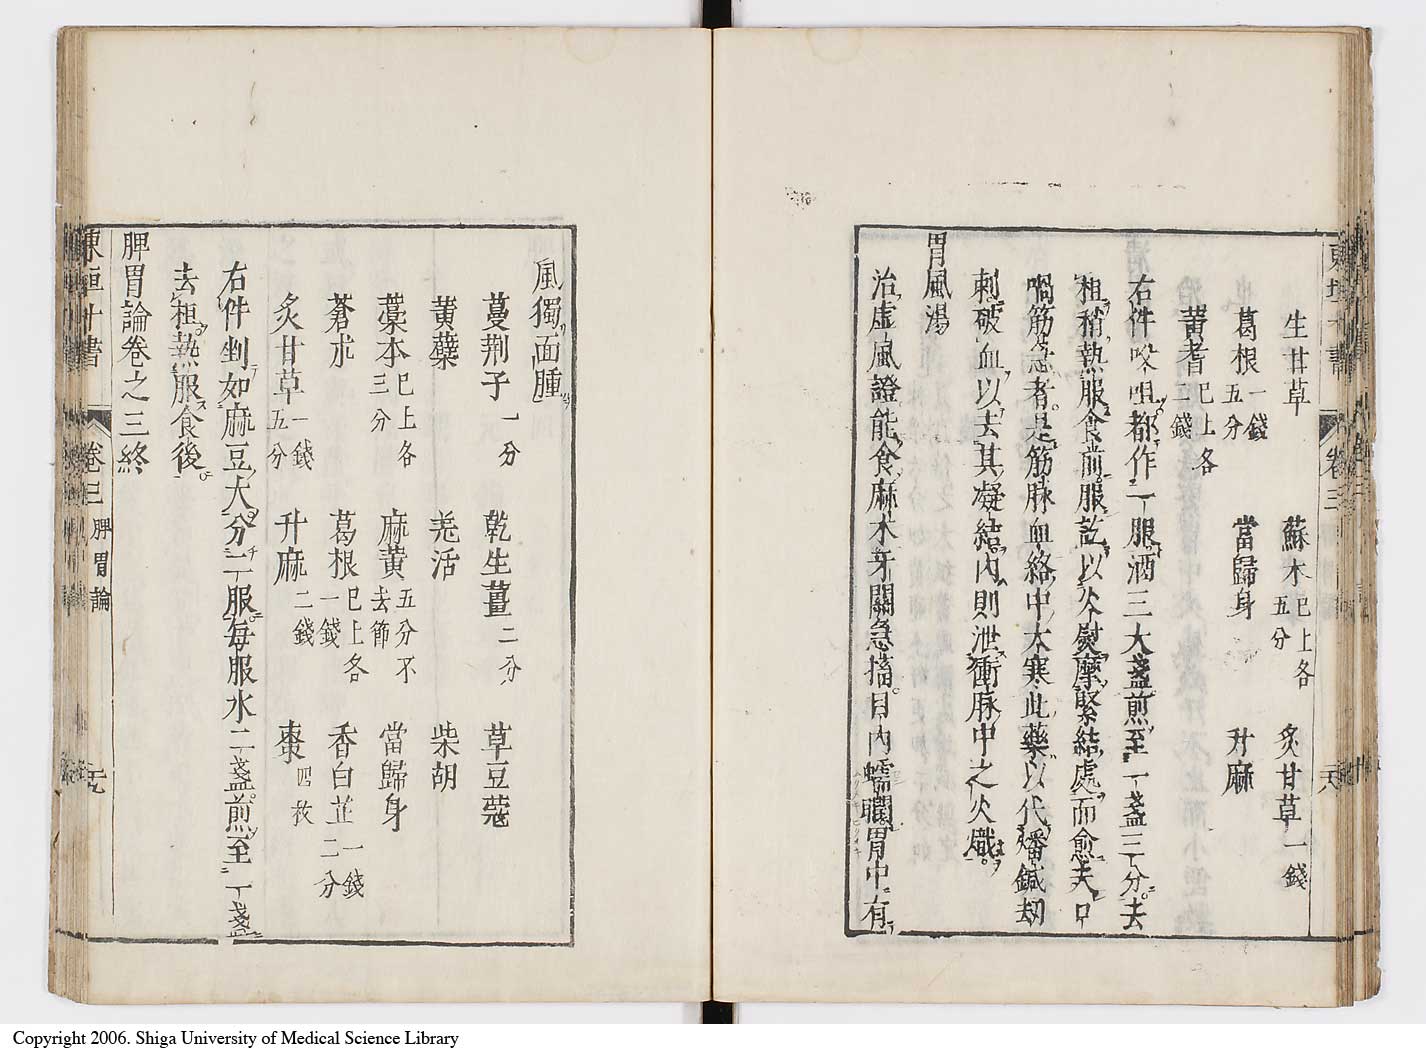 生甘草 蘇木已上各五分 炙甘草一錢
葛根一錢五分 當歸身 升麻
黄耆已上各二錢
右件㕮咀都作一服酒三大盞煎至一盞三分去
柤稍熱服食前服訖以火熨摩緊結處而愈夫口
喎筋急者是筋脉血絡中大寒此藥以代燔鍼刼
刺破血以去其凝結内則泄衝脉中之火熾
胃風湯
治虚風證能食麻木牙關急搐目内蠕瞤胃中有
東垣十書 卷三 廿八
風獨面腫
蔓荆子一分 乾生薑二分 草豆蔻
黄蘗 羌活 柴胡
藁本已上各三分 麻黄五分不去節 當歸身
蒼朮 葛根已上各一錢 香白芷一錢二分
炙甘草一錢五分 升麻二錢 棗四枚
右件剉如麻豆大分二服毎服水二盞煎至一盞
去柤熱服食後
脾胃論卷之三終
東垣十書 卷三 脾胃論 廿九
Copyright 2006. Shiga University of Medical Science Library